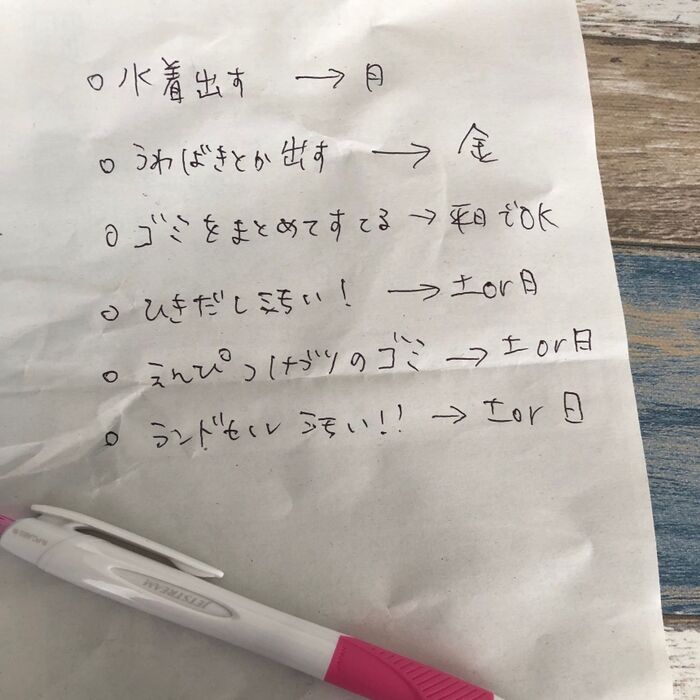 ○ 水着出す → 月
○ うわばきとか出す → 金
○ ゴミをまとめてすてる → 平日でOK
○ ひきだし汚い! → 土or日
○ えんぴつけずりのゴミ → 土or日
○ ランドセル汚い!! → 土or日
JETSTREAM